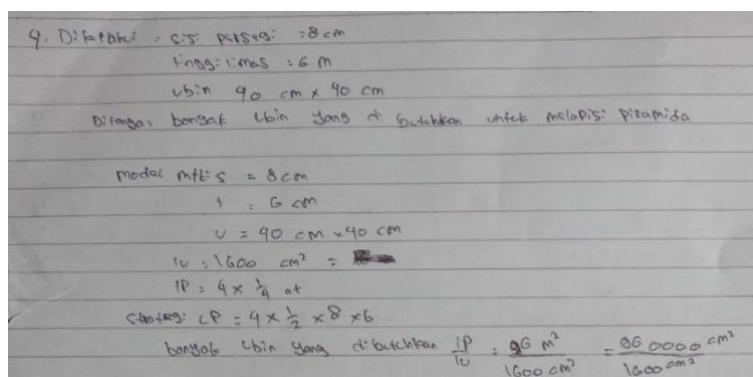 4. Diketahui : sisi persegi : 8 cm
tinggi limas : 6 m
ubin 40 cm x 40 cm
Ditanya : banyak ubin yang di butuhkan untuk melapisi piramida
model mtk : s = 8 cm
t = 6 cm
u = 40 cm x 40 cm
lu = 1600 cm² =
lP = 4 x 1/4 at
Strategi LP = 4 x 1/2 x 8 x 6
banyak ubin yang dibutuhkan lP/lu = 96 m²/1600 cm² = 960000 cm²/1600 cm²